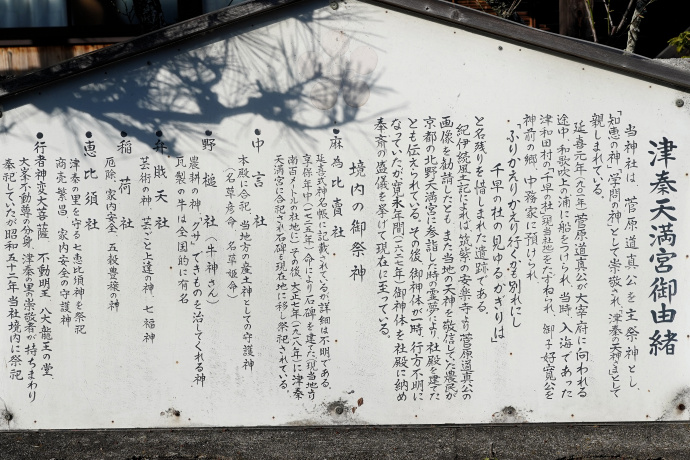 津秦天満宮御由緒
当神社は、菅原道真公を主祭神とし、
「知恵の神」「学問の神」として崇敬され、「津秦の天神さん」として
親しまれている。
延喜元年(九〇一年)菅原道真公が大宰府に向われる
途中、和歌吹上の浦に船をつけられ、当時、入海であった
津和田村の「千早の杜」(現当社叢)をたずねられ、御子好寛公を
神前の郷、中務家に預けられ、
「ふりかえりかえり行くも別れにし
千早の杜の見ゆるかぎりは」
と名残りを惜しまれた遺跡である。
紀伊続風土記によれば、筑紫の安楽寺より菅原道真公の
画像を勧請したとも、また当地の天神を敬信していた農民が
京都の北野天満宮に参詣した時の霊夢により、社殿を建てた
とも伝えられている。その後、御神体が一時、行方不明に
なっていたが、寛永年間(一六二七年)御神体を社殿に納め
奉斉の盛儀を挙げて現在に至っている。
境内の御祭神
●麻為比賣社
延喜式神名帳に記載されているが詳細は不明である。
享保年中(一七二五年)命により石碑を建てた(現当地より
南百メートルの社地に)その後、大正七年(一九一八年)に津秦
天満宮に合祀され石碑も現在地に移し祭祀されている。
●中言社
本殿に合祀 当地方の産土神としての守護神
(名草彦命、名草姫命)
●野槌社(牛神さん)
農耕の神、「クサ」できものを治してくれる神
瓦製の牛は全国的に有名
●弁財天社
芸術の神、芸ごと上達の神、七福神
●稲荷社
厄除、家内安全、五穀豊穣の神
●恵比須社
津秦の里を守る七恵比須神を祭祀
商売繁昌、家内安全の守護神
●行者神変大菩薩 不動明王 八大龍王の堂、
大峯不動尊の分身、津秦の里の崇敬者が持ちまわり
奉祀していたが昭和五十三年当社境内に祭祀